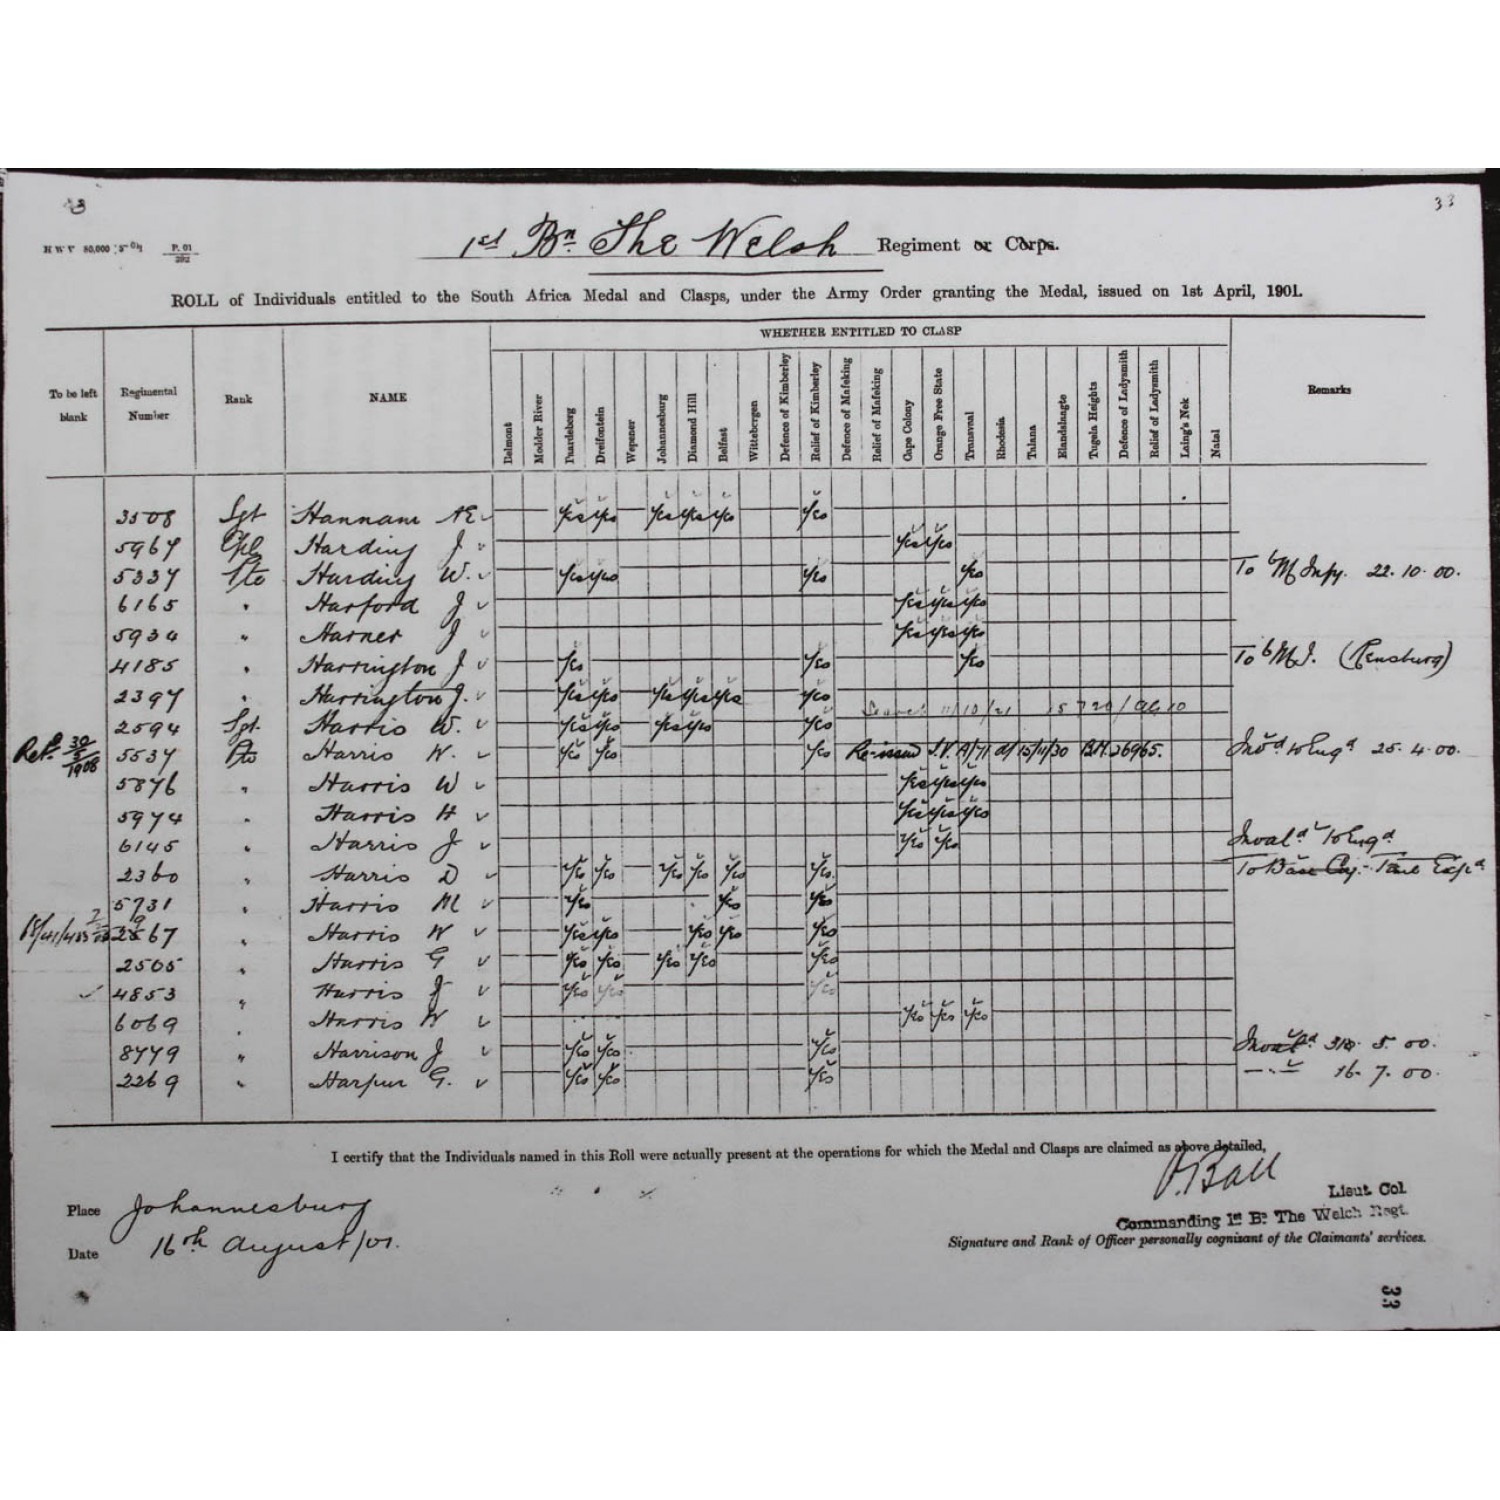 33
33
H W V 80,000 P. 01
292
1st Bn The Welsh Regiment or Corps.
ROLL of Individuals entitled to the South Africa Medal and Clasps, under the Army Order granting the Medal, issued on 1st April, 1901.
WHETHER ENTITLED TO CLASP
To be left blank Regimental Number Rank NAME Belmont Modder River Paardeberg Dreifontein Wepener Johannesburg Diamond Hill Belfast Wittebergen Defence of Kimberley Relief of Kimberley Defence of Mafeking Relief of Mafeking Cape Colony Orange Free State Transvaal Rhodesia Talana Elandslaagte Tugela Heights Defence of Ladysmith Relief of Ladysmith Laing's Nek Natal Remarks
3508 Sgt Hannam AE Yes Yes Yes Yes Yes Yes
5967 Cpl Harding J Yes Yes
5337 Pte Harding W. Yes Yes Yes Yes To 6 M Infy. 22.10.00.
6165 " Harford J Yes Yes Yes
5934 " Harner J Yes Yes Yes
4185 " Harrington J Yes Yes Yes To 6 M.I. (Rensburg)
2397 " Harrington J. Yes Yes Yes Yes Yes Yes
11/10/21
2594 Sgt. Harris W. Yes Yes Yes Yes Yes
Retd 30/5/1908 5537 Pte Harris W. Yes Yes Yes Re-issued I.V. A/71 d/ 15/11/30 B.M. 26965. Invd to Engd 25.4.00.
5876 " Harris W Yes Yes Yes
5974 " Harris H Yes Yes Yes
6145 " Harris J Yes Yes Invald to Engd
2360 " Harris D Yes Yes Yes Yes Yes Yes To Base Coy. Time Expd
5731 " Harris M Yes Yes Yes
2567 " Harris W Yes Yes Yes Yes Yes
2505 " Harris G Yes Yes Yes Yes Yes
4853 " Harris J Yes Yes Yes
6069 " Harris W Yes Yes Yes
8779 " Harrison J Yes Yes Yes Invald 5.00.
2269 " Harpur G. Yes Yes Yes " 16.7.00.
I certify that the Individuals named in this Roll were actually present at the operations for which the Medal and Clasps are claimed as above detailed,
Ball
Lieut. Col
Place Johannesburg
Commanding 1st Bn The Welch Regt.
Date 16th August/01.
Signature and Rank of Officer personally cognisant of the Claimants' services.
33